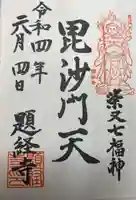 柴又七福神
毘沙門天
令和四年
元月四日
題経寺